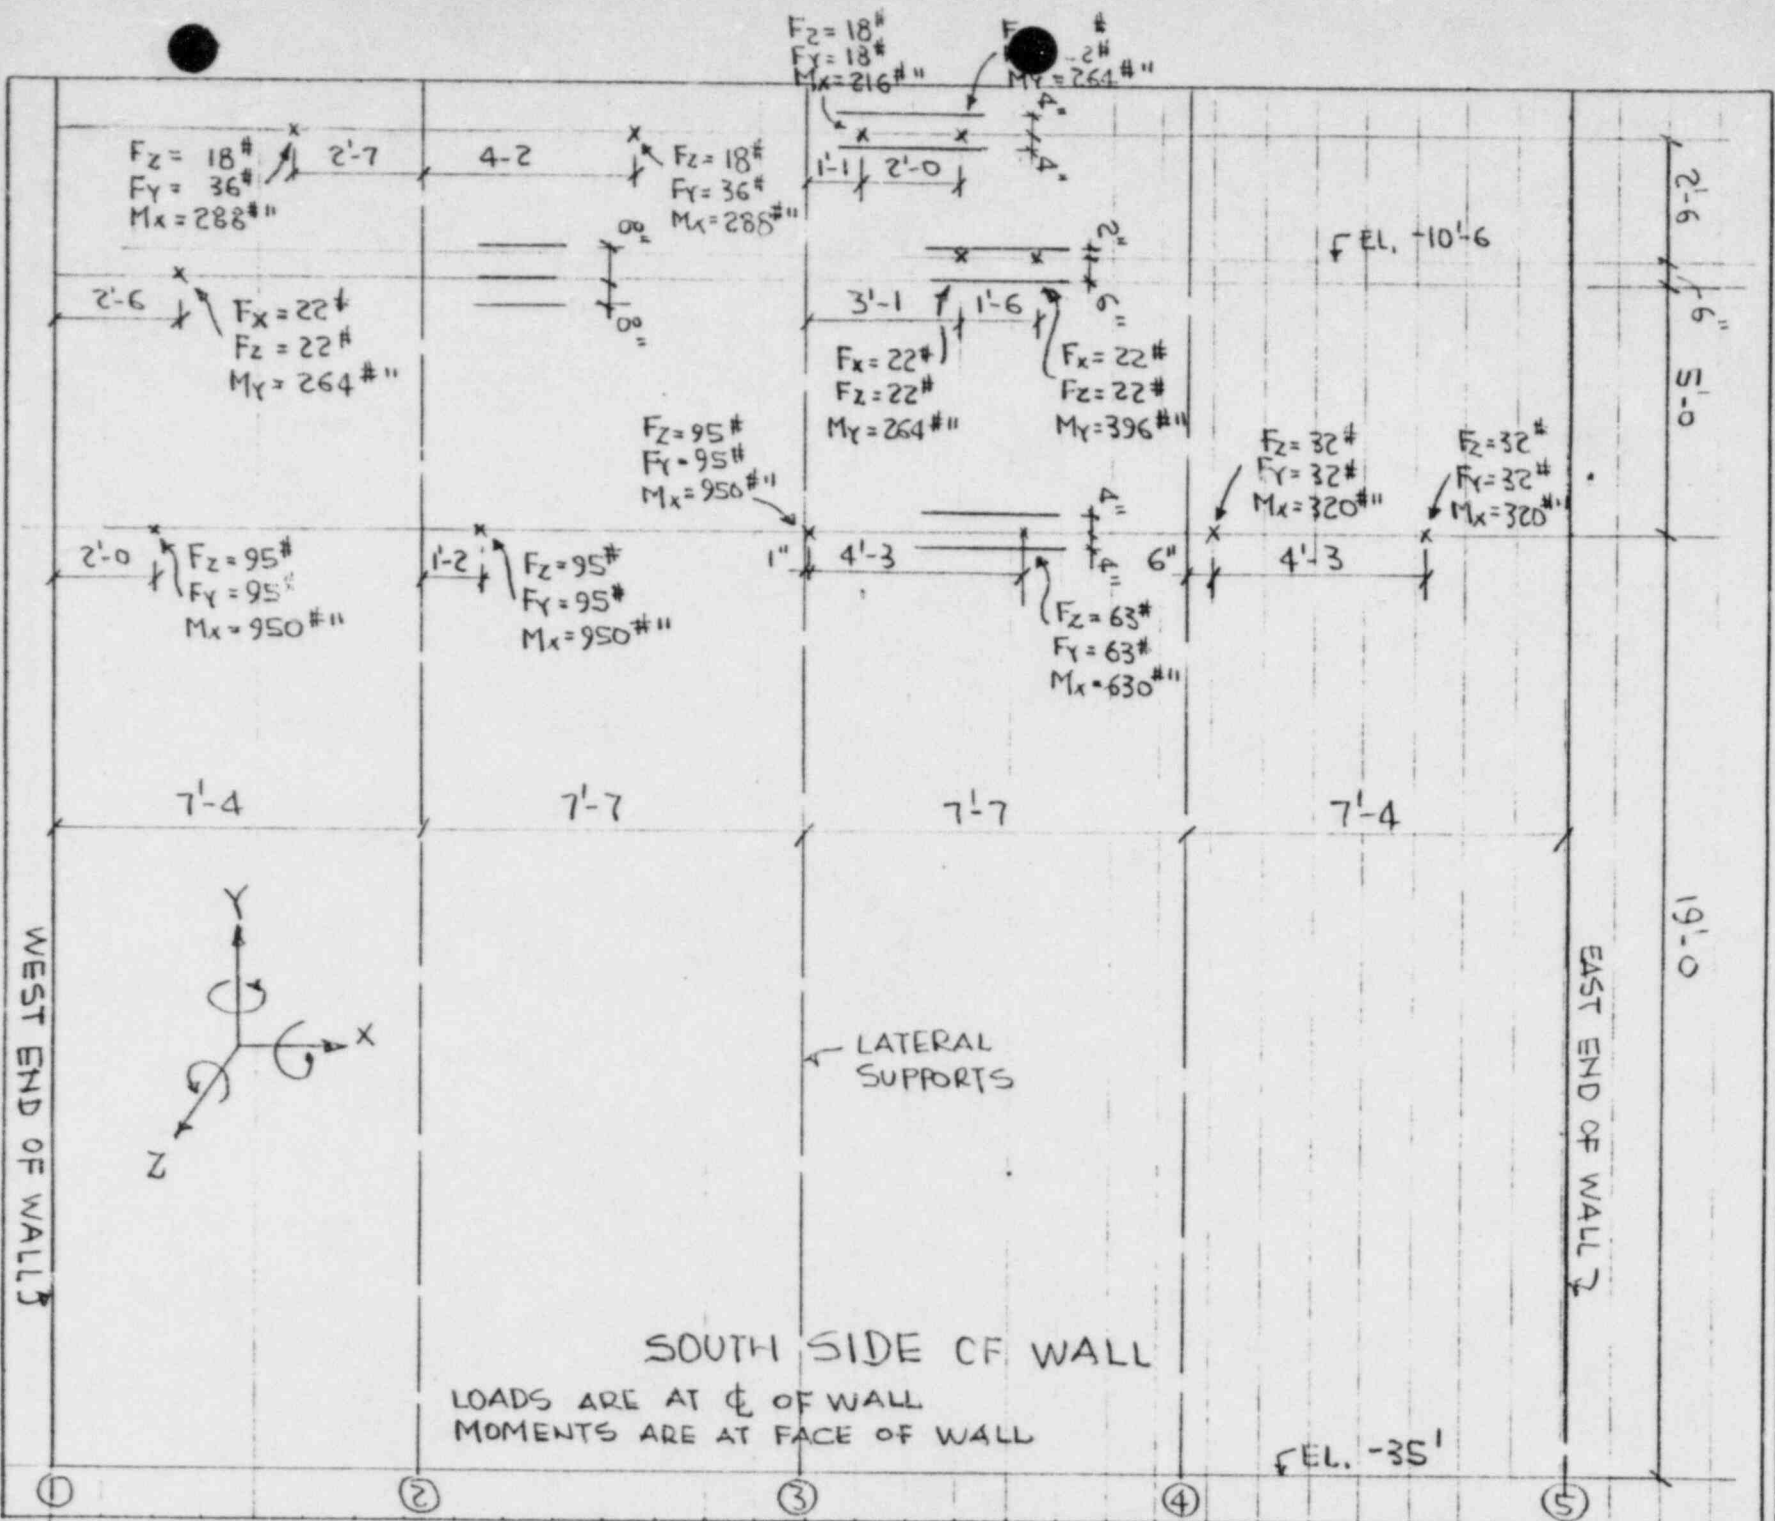 Fz = 18#
Fy = 18#
Mx = 216#"
F #
-2#
My = 264#"
4"
4"
Fz = 18#
Fy = 36#
Mx = 288#"
2'-7
4-2
Fz = 18#
Fy = 36#
Mx = 288#"
1'-1
2'-0
2'-6
EL. -10'-6
8"
8"
2"
6"
6"
2'-6
Fx = 22#
Fz = 22#
My = 264#"
3'-1
1'-6
Fx = 22#
Fz = 22#
My = 264#"
Fx = 22#
Fz = 22#
My = 396#"
5'-0
Fz = 95#
Fy = 95#
Mx = 950#"
Fz = 32#
Fy = 32#
Mx = 320#"
Fz = 32#
Fy = 32#
Mx = 320#"
2'-0
Fz = 95#
Fy = 95#
Mx = 950#"
1'-2
Fz = 95#
Fy = 95#
Mx = 950#"
1"
4'-3
4"
4"
6"
4'-3
Fz = 63#
Fy = 63#
Mx = 630#"
7'-4
7'-7
7'-7
7'-4
19'-0
Y
X
Z
WEST END OF WALL
LATERAL
SUPPORTS
EAST END OF WALL
SOUTH SIDE OF WALL
LOADS ARE AT ℄ OF WALL
MOMENTS ARE AT FACE OF WALL
EL. -35'
1
2
3
4
5